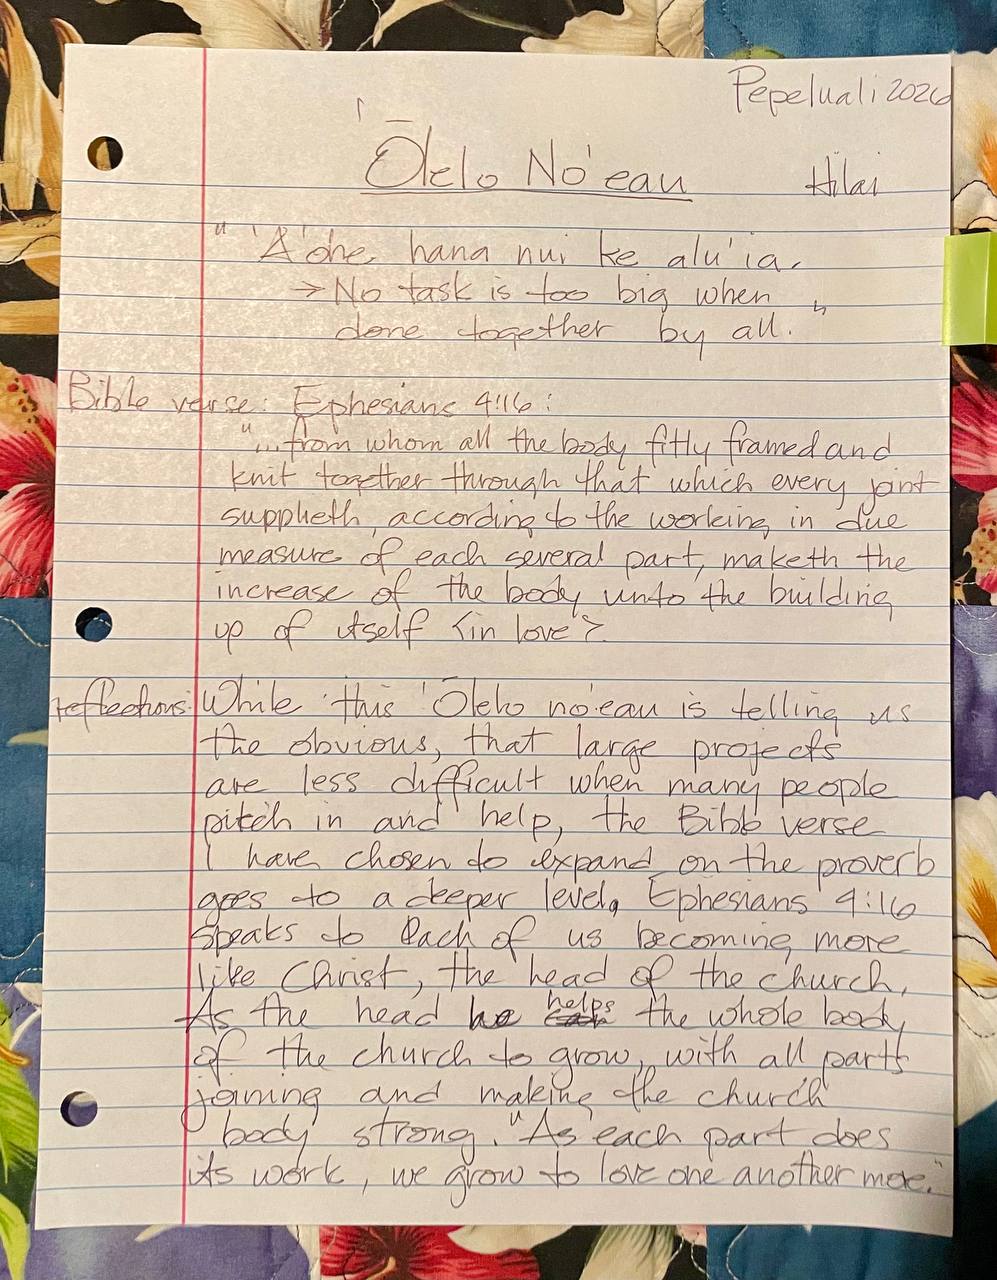 Pepeluali 2026
'Ōlelo No'eau
Hilai
" 'A'ohe hana nui ke alu 'ia.
→ No task is too big when
done together by all. "
Bible verse: Ephesians 4:16:
"...from whom all the body fitly framed and
knit together through that which every joint
supplieth, according to the working in due
measure of each several part, maketh the
increase of the body unto the building
up of itself <in love>.
reflections: While this 'Ōlelo no'eau is telling us
the obvious, that large projects
are less difficult when many people
pitch in and help, the Bible verse
I have chosen to expand on the proverb
goes to a deeper level. Ephesians 4:16
speaks to each of us becoming more
like Christ, the head of the church.
As the head he helps the whole body
of the church to grow, with all parts
joining and making the church
body strong. "As each part does
its work, we grow to love one another more."